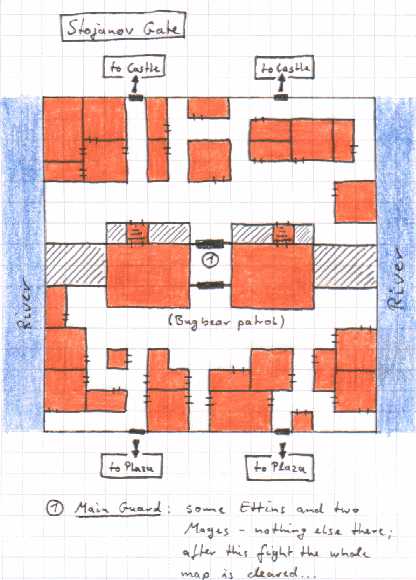 Stojanov Gate
to Castle
to Castle
River
River
①
(Bugbear patrol)
to Plaza
to Plaza
① Main Guard: some Ettins and two
Mages - nothing else there;
after this fight the whole
map is cleared...